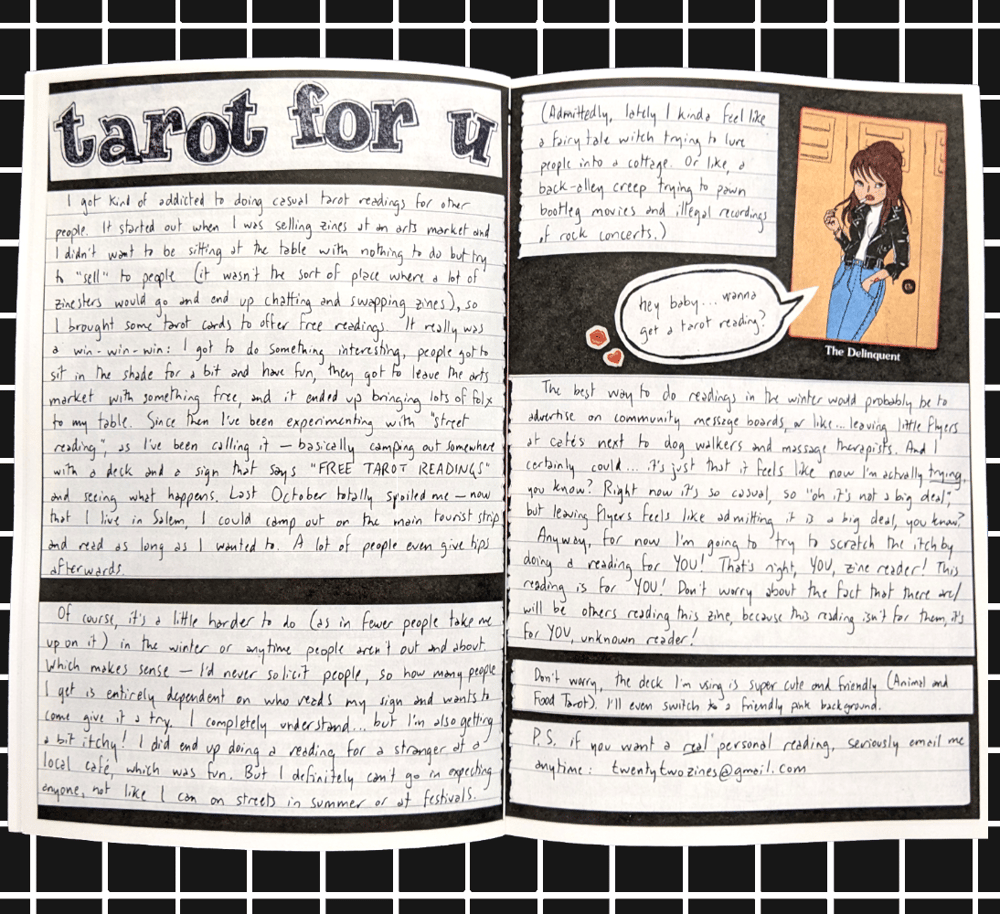 tarot for u
I got kind of addicted to doing casual tarot readings for other
people. It started out when I was selling zines at an arts market and
I didn't want to be sitting at the table with nothing to do but try
to "sell" to people (it wasn't the sort of place where a lot of
zinesters would go and end up chatting and swapping zines), so
I brought some tarot cards to offer free readings. It really was
a win-win-win: I got to do something interesting, people got to
sit in the shade for a bit and have fun, they got to leave the arts
market with something free, and it ended up bringing lots of folx
to my table. Since then I've been experimenting with "street
reading", as I've been calling it — basically camping out somewhere
with a deck and a sign that says "FREE TAROT READINGS"
and seeing what happens. Last October totally spoiled me — now
that I live in Salem, I could camp out on the main tourist strip
and read as long as I wanted to. A lot of people even give tips
afterwards.
Of course, it's a little harder to do (as in fewer people take me
up on it) in the winter or anytime people aren't out and about.
Which makes sense — I'd never solicit people, so how many people
I get is entirely dependent on who reads my sign and wants to
come give it a try. I completely understand... but I'm also getting
a bit itchy! I did end up doing a reading for a stranger at a
local café, which was fun. But I definitely can't go in expecting
anyone, not like I can on streets in summer or at festivals.
(Admittedly, lately I kinda feel like
a fairy tale witch trying to lure
people into a cottage. Or like, a
back-alley creep trying to pawn
bootleg movies and illegal recordings
of rock concerts.)
hey baby... wanna
get a tarot reading?
The Delinquent
The best way to do readings in the winter would probably be to
advertise on community message boards, or like... leaving little flyers
at cafés next to dog walkers and massage therapists. And I
certainly could... it's just that it feels like now I'm actually trying,
you know? Right now it's so casual, so "oh it's not a big deal",
but leaving flyers feels like admitting it is a big deal, you know?
Anyway, for now I'm going to try to scratch the itch by
doing a reading for YOU! That's right, YOU, zine reader! This
reading is for YOU! Don't worry about the fact that there are/
will be others reading this zine, because this reading isn't for them, it's
for YOU, unknown reader!
Don't worry, the deck I'm using is super cute and friendly (Animal and
Food Tarot). I'll even switch to a friendly pink background.
P.S. if you want a real personal reading, seriously email me
anytime: twentytwozines@gmail.com